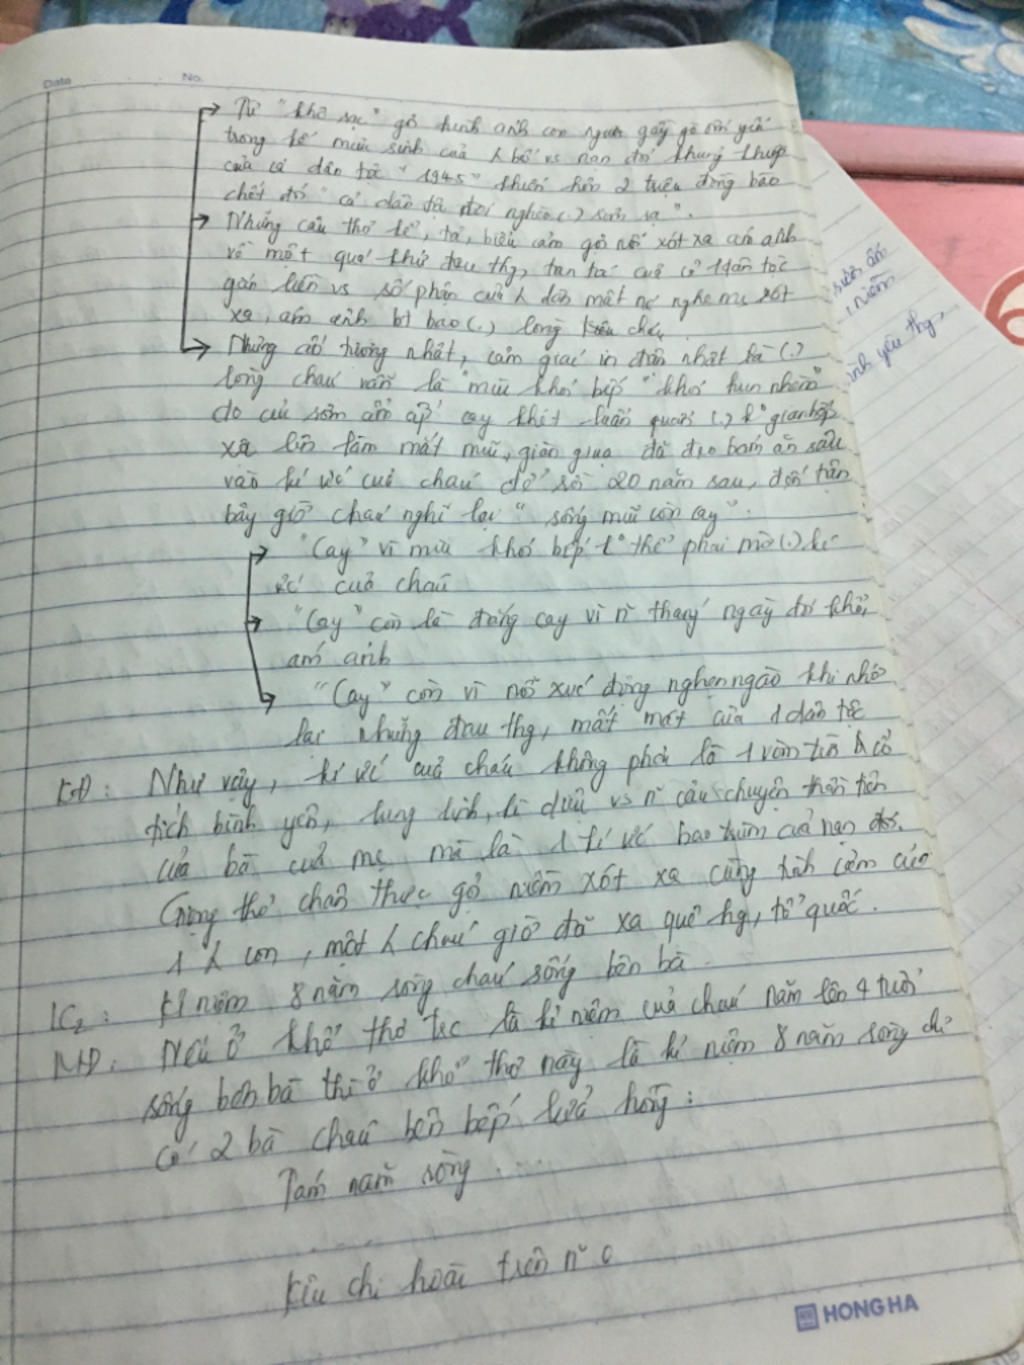 Date No.
Từ "khô rạc" gợ hình ảnh con người gầy gò ốm yếu
trong kế mưu sinh của bố vs nạn đói khủng khiếp
của cả dân tộc "1945" khiến hơn 2 triệu đồng bào
chết đói "cả dân tộc đói nghèo (.) rơm rạ".
Những câu thơ kể, tả, biểu cảm gợ nỗi xót xa ám ảnh
về một quá khứ đau thg, tan tác của cả dân tộc
gắn liền vs số phận của dân mất nc nghe mà xót
xa, ám ảnh bt bao (.) lòng
Nhưng ấn tượng nhất, cảm giác in đậm nhất là (.)
lòng cháu vẫn là "mùi khói bếp" "khói hun nhèm"
do củi sớm ẩm ướt cay khét luẩn quẩn (.) k° gian bếp
xa lên làm mắt mũi, giàn giụa đã đeo bám ăn sâu
vào kí ức của cháu để rồi 20 năm sau, đến tận
bây giờ cháu nghĩ lại "sống mũi còn cay".
"Cay" vì mùi khói bếp k° thể phai mờ (.) kí
ức của cháu
"Cay" còn là đắng cay vì n~ tháng ngày đói khổ,
ám ảnh
"Cay" còn vì nỗi xúc động nghẹn ngào khi nhớ
lại những đau thg, mất mát của 1 dân tộc
KĐ: Như vậy, kí ức của cháu không phải là 1 vườn cổ
tích bình yên, lung linh, kì diệu vs n~ câu chuyện thần tiên
của bà của mẹ mà là 1 kí ức bao trùm của nạn đói.
Giọng thơ chân thực gợ niềm xót xa cùng tình cảm của
1 con, một cháu giờ đã xa quê hg, tổ quốc.
LC2: Kỉ niệm 8 năm ròng cháu sống bên bà.
NĐ: Nếu ở khổ thơ trc là kỉ niệm của cháu năm lên 4 tuổi
sống bên bà thì ở khổ thơ này là kỉ niệm 8 năm ròng chỉ
có 2 bà cháu bên bếp lửa hồng:
Tám năm ròng ....
Kêu chi hoài trên n~ c
HONG HA